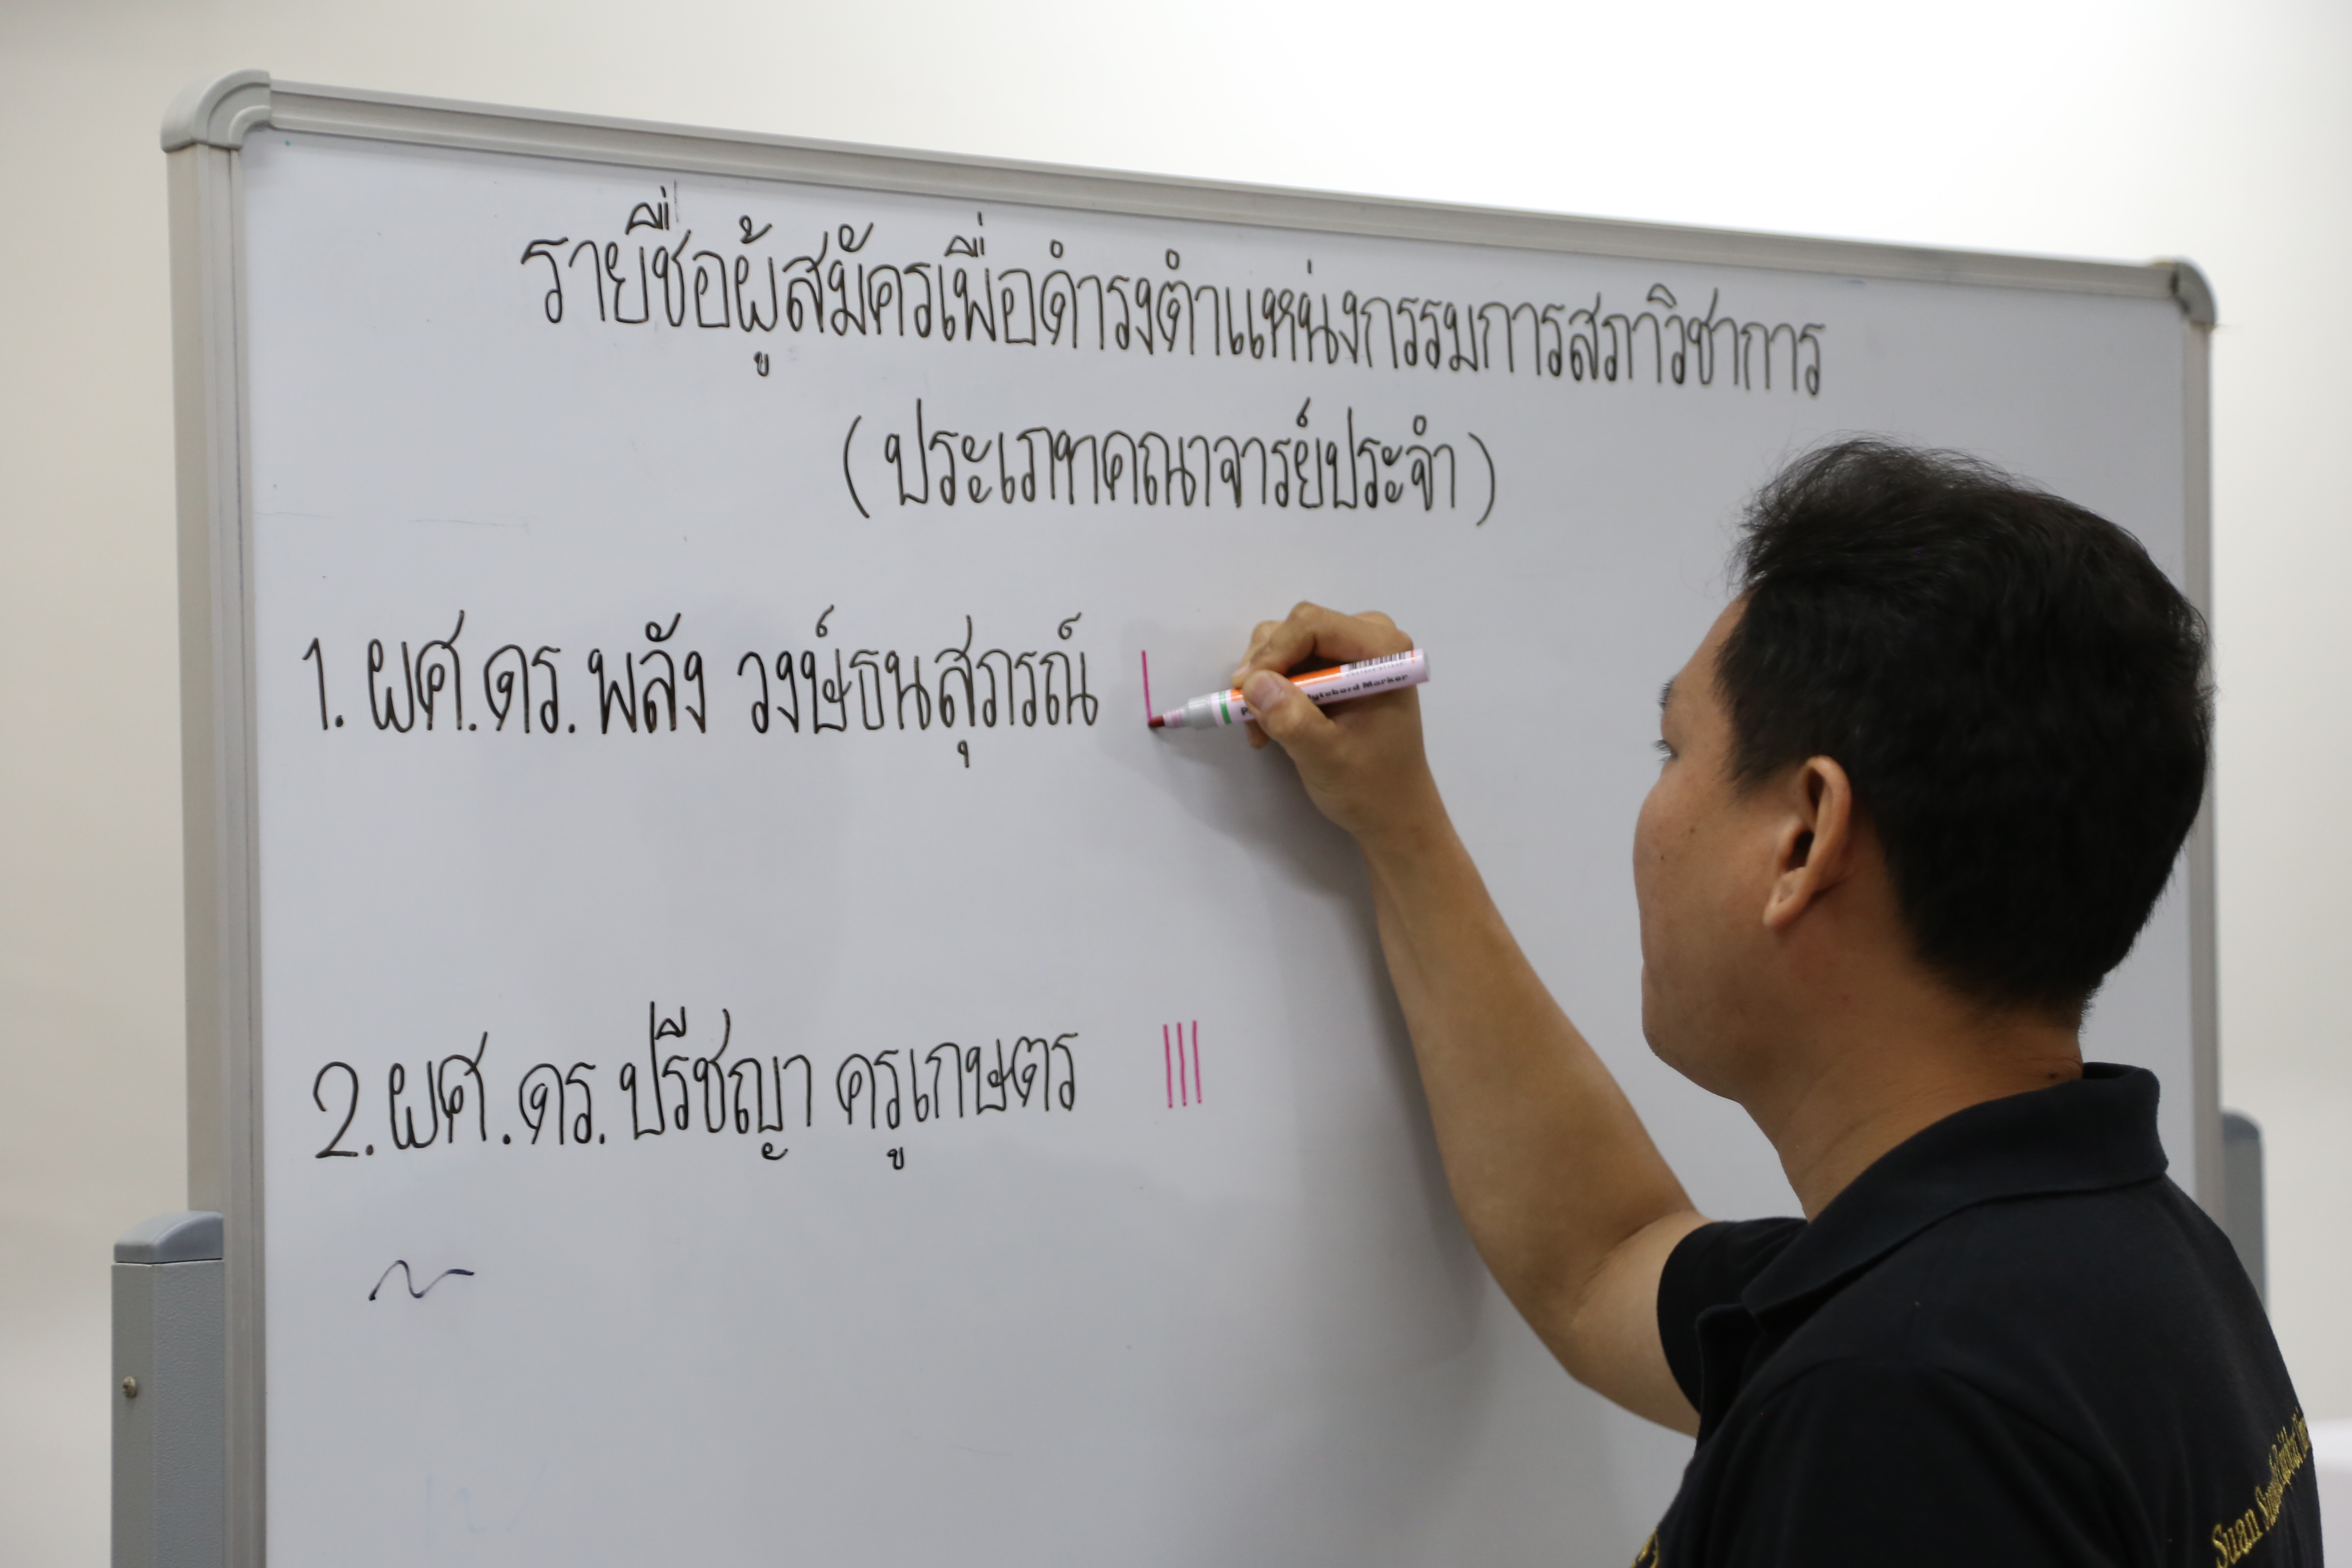 รายชื่อผู้สมัครเพื่อดำรงตำแหน่งกรรมการสภาวิชาการ
(ประเภทคณาจารย์ประจำ)
1. ผศ.ดร. พลัง วงษ์ธนสุภรณ์
2. ผศ.ดร. ปรีชญา ครูเกษตร
Marker
Suan